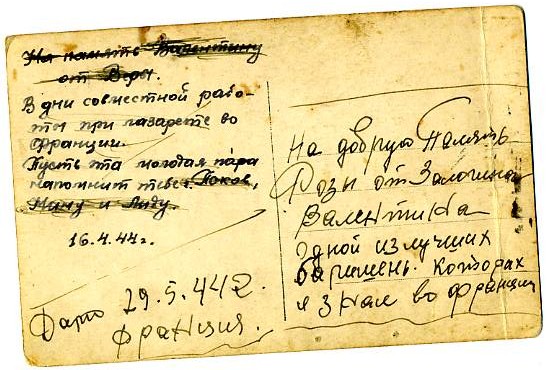 На память Валентину
от Веры.
В дни совместной рабо-
ты при лазарете во
Франции.
Пусть эта молодая пара
напомнит тебе:
и Лиду.
16.4.44г.
Дарю 29.5.442.
Франция.
На добрую Память
Розы от
Валентина
Одной из лучших
баришень. Которах
я знал во франции